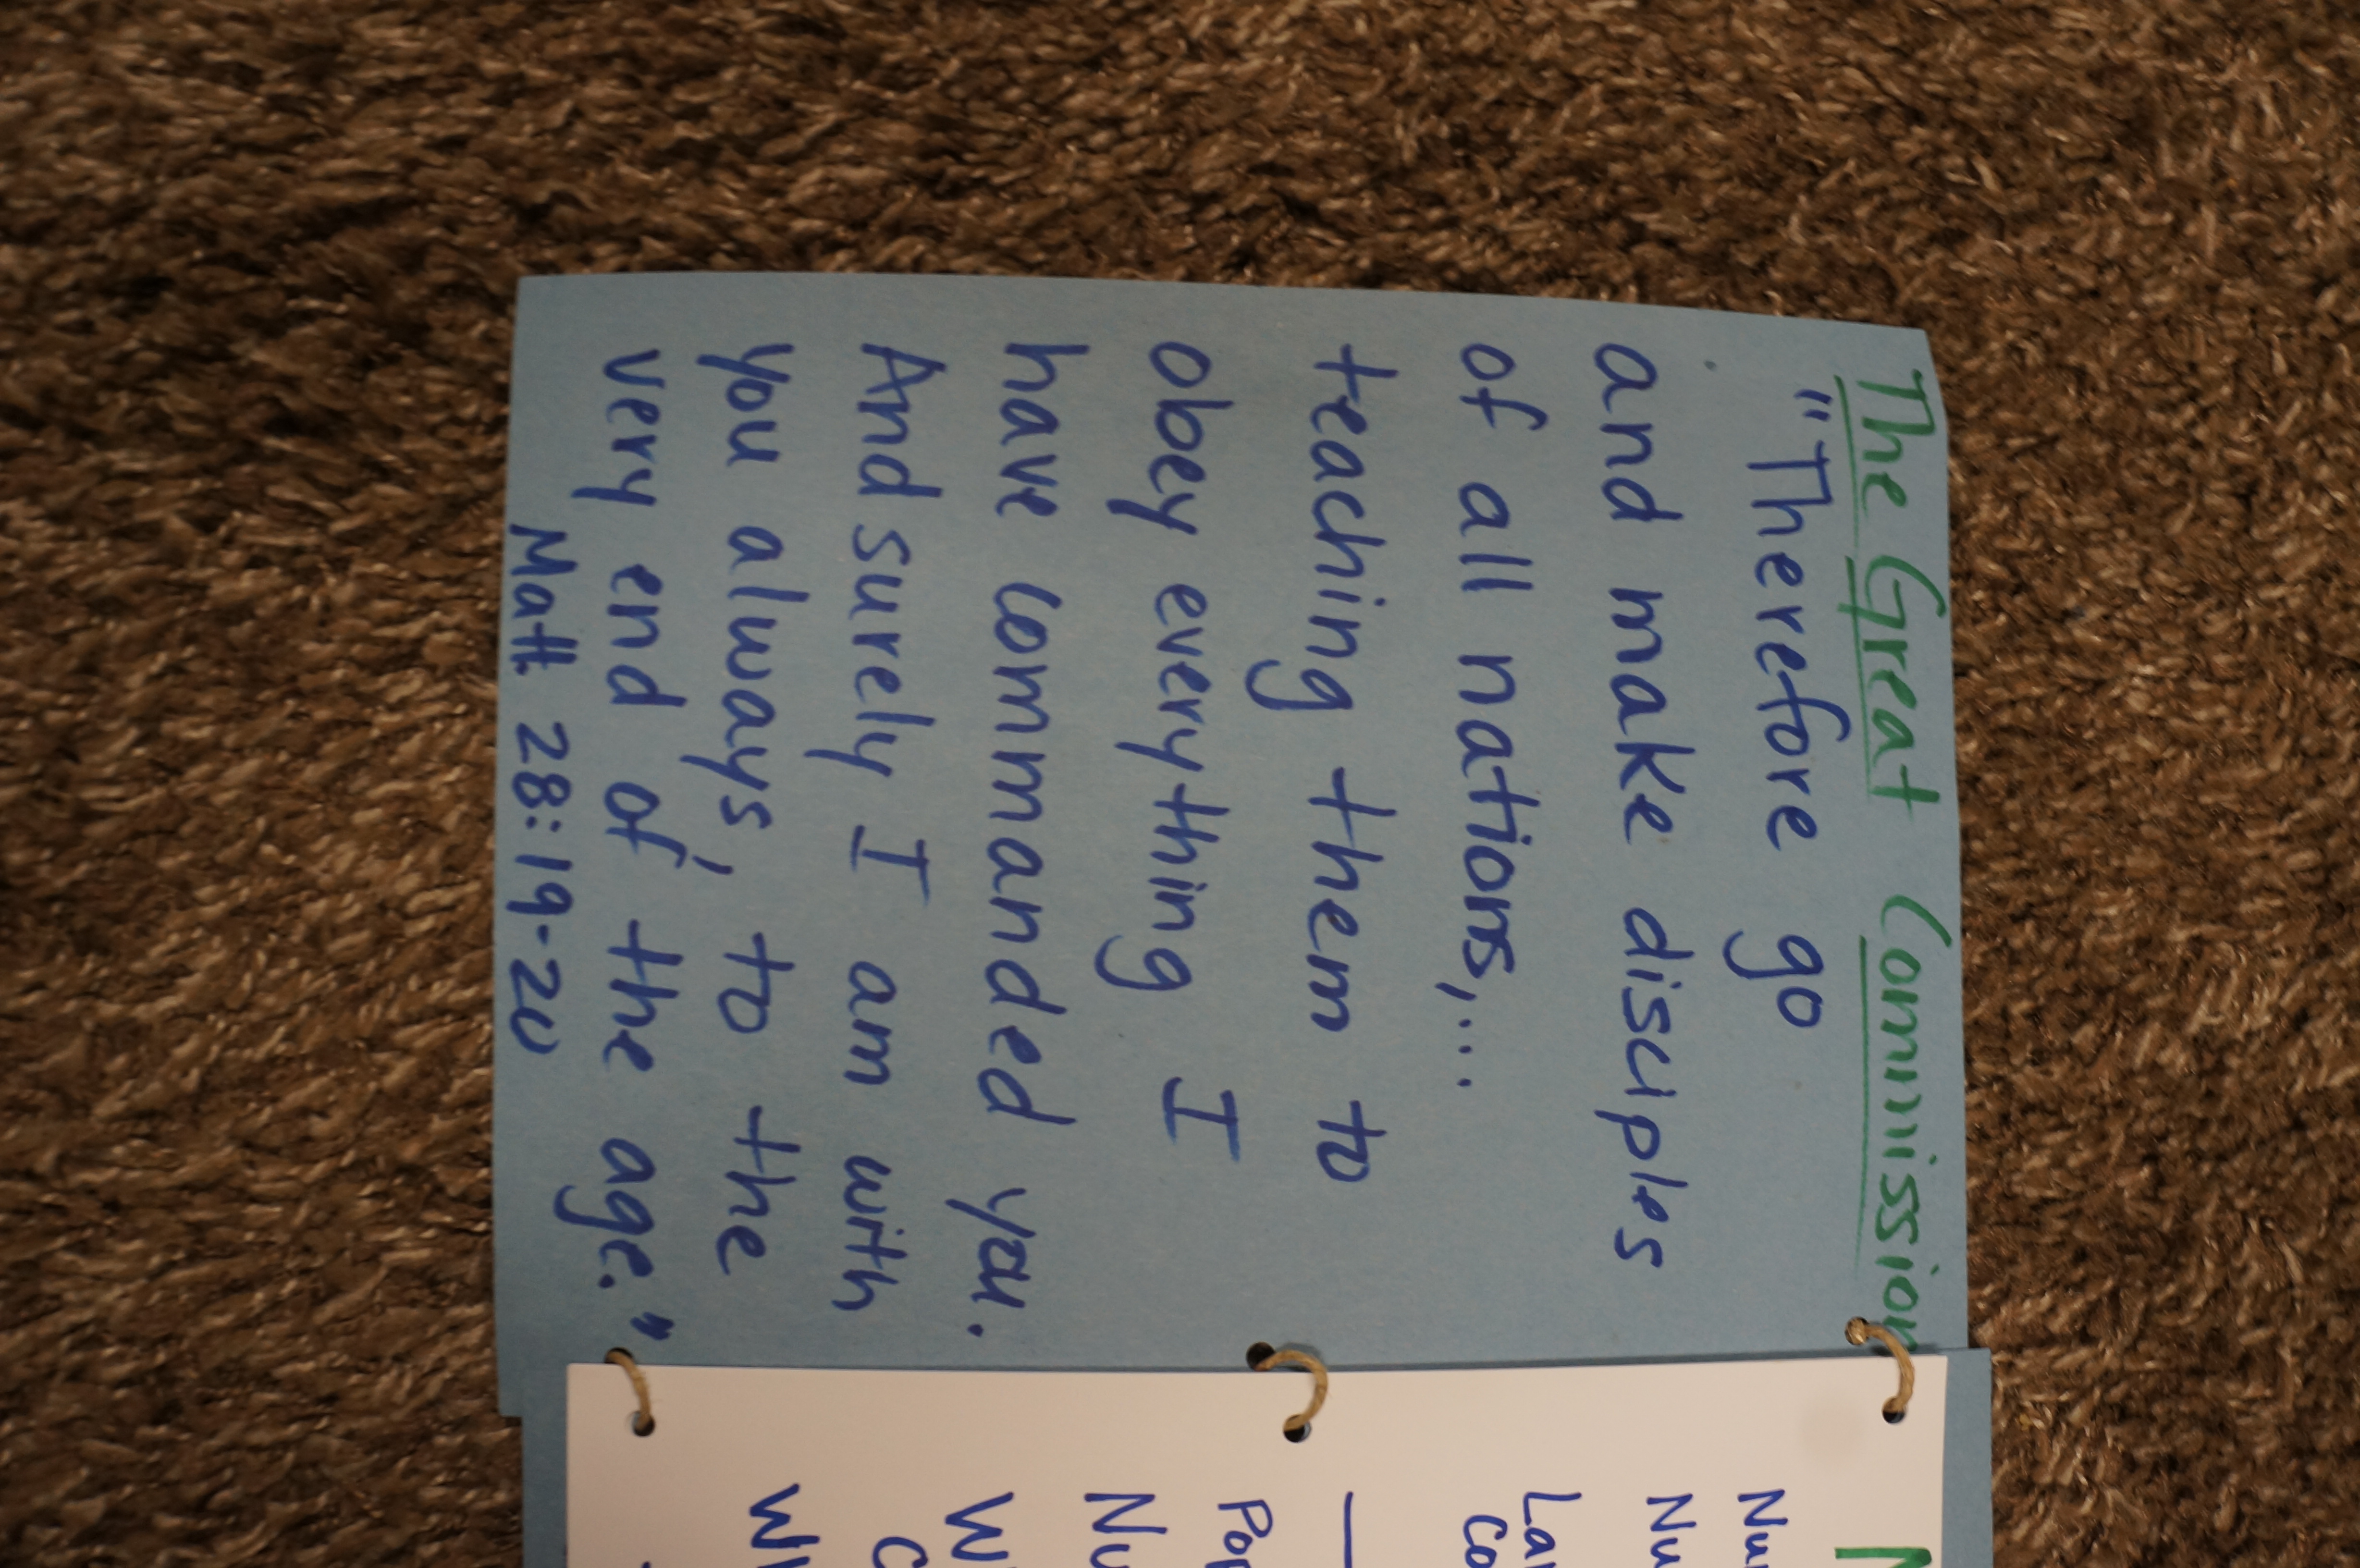 The Great Commission
"Therefore go
and make disciples
of all nations,...
teaching them to
obey everything I
have commanded you.
And surely I am with
you always, to the
very end of the age."
Matt. 28:19-20